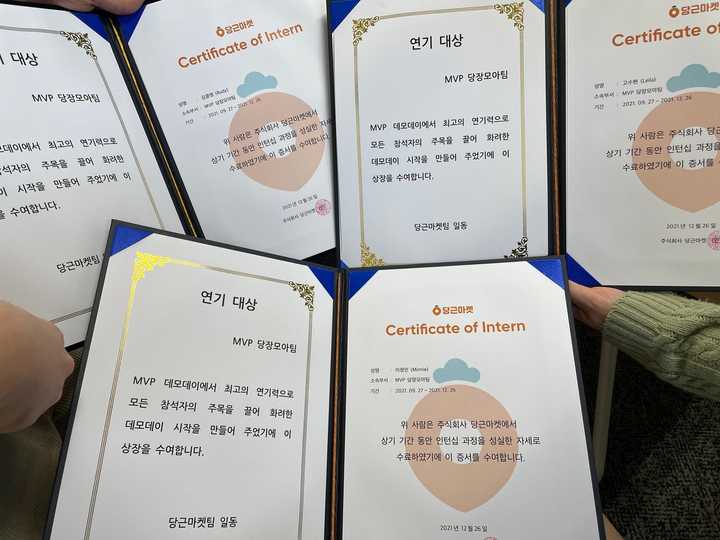 기 대상
MVP 당장모아팀
데모데이에서 최고의 연기력으로
참석자의 주목을 끌어 화려한
이 시작을 만들어 주었기에 이
수여합니다.
당근마켓팀
당근마켓
Certificate of Intern
성명 : (Rudy)
소속부서 : MVP 당장모아팀
기간 : 2021. 09. 27 ~ 2021. 12. 26
위 사람은 주식회사 당근마켓에서
상기 기간 동안 인턴십 과정을 성실한 자세로
수료하였기에 이 증서를 수여합니다.
2021년 12월 26일
주식회사 당근마켓
연기 대상
MVP 당장모아팀
MVP 데모데이에서 최고의 연기력으로
모든 참석자의 주목을 끌어 화려한
데모데이 시작을 만들어 주었기에 이
상장을 수여합니다.
당근마켓팀 일동
당근마켓
Certificate of Inte
성명 : 고수현 (Leila)
소속부서 : MVP 당장모아팀
기간 : 2021. 09. 27 ~ 2021. 12. 26
위 사람은 주식회사 당근마켓에
상기 기간 동안 인턴십 과정을 성실
수료하였기에 이 증서를 수여합
2021년 12월 26일
주식회사 당근마켓
연기 대상
MVP 당장모아팀
MVP 데모데이에서 최고의 연기력으로
모든 참석자의 주목을 끌어 화려한
데모데이 시작을 만들어 주었기에 이
상장을 수여합니다.
당근마켓팀 일동
당근마켓
Certificate of Intern
성명 : 이정민 (Minnie)
소속부서 : MVP 당장모아팀
기간 : 2021. 09. 27 ~ 2021. 12. 26
위 사람은 주식회사 당근마켓에서
상기 기간 동안 인턴십 과정을 성실한 자세로
수료하였기에 이 증서를 수여합니다.
2021년 12월 26일